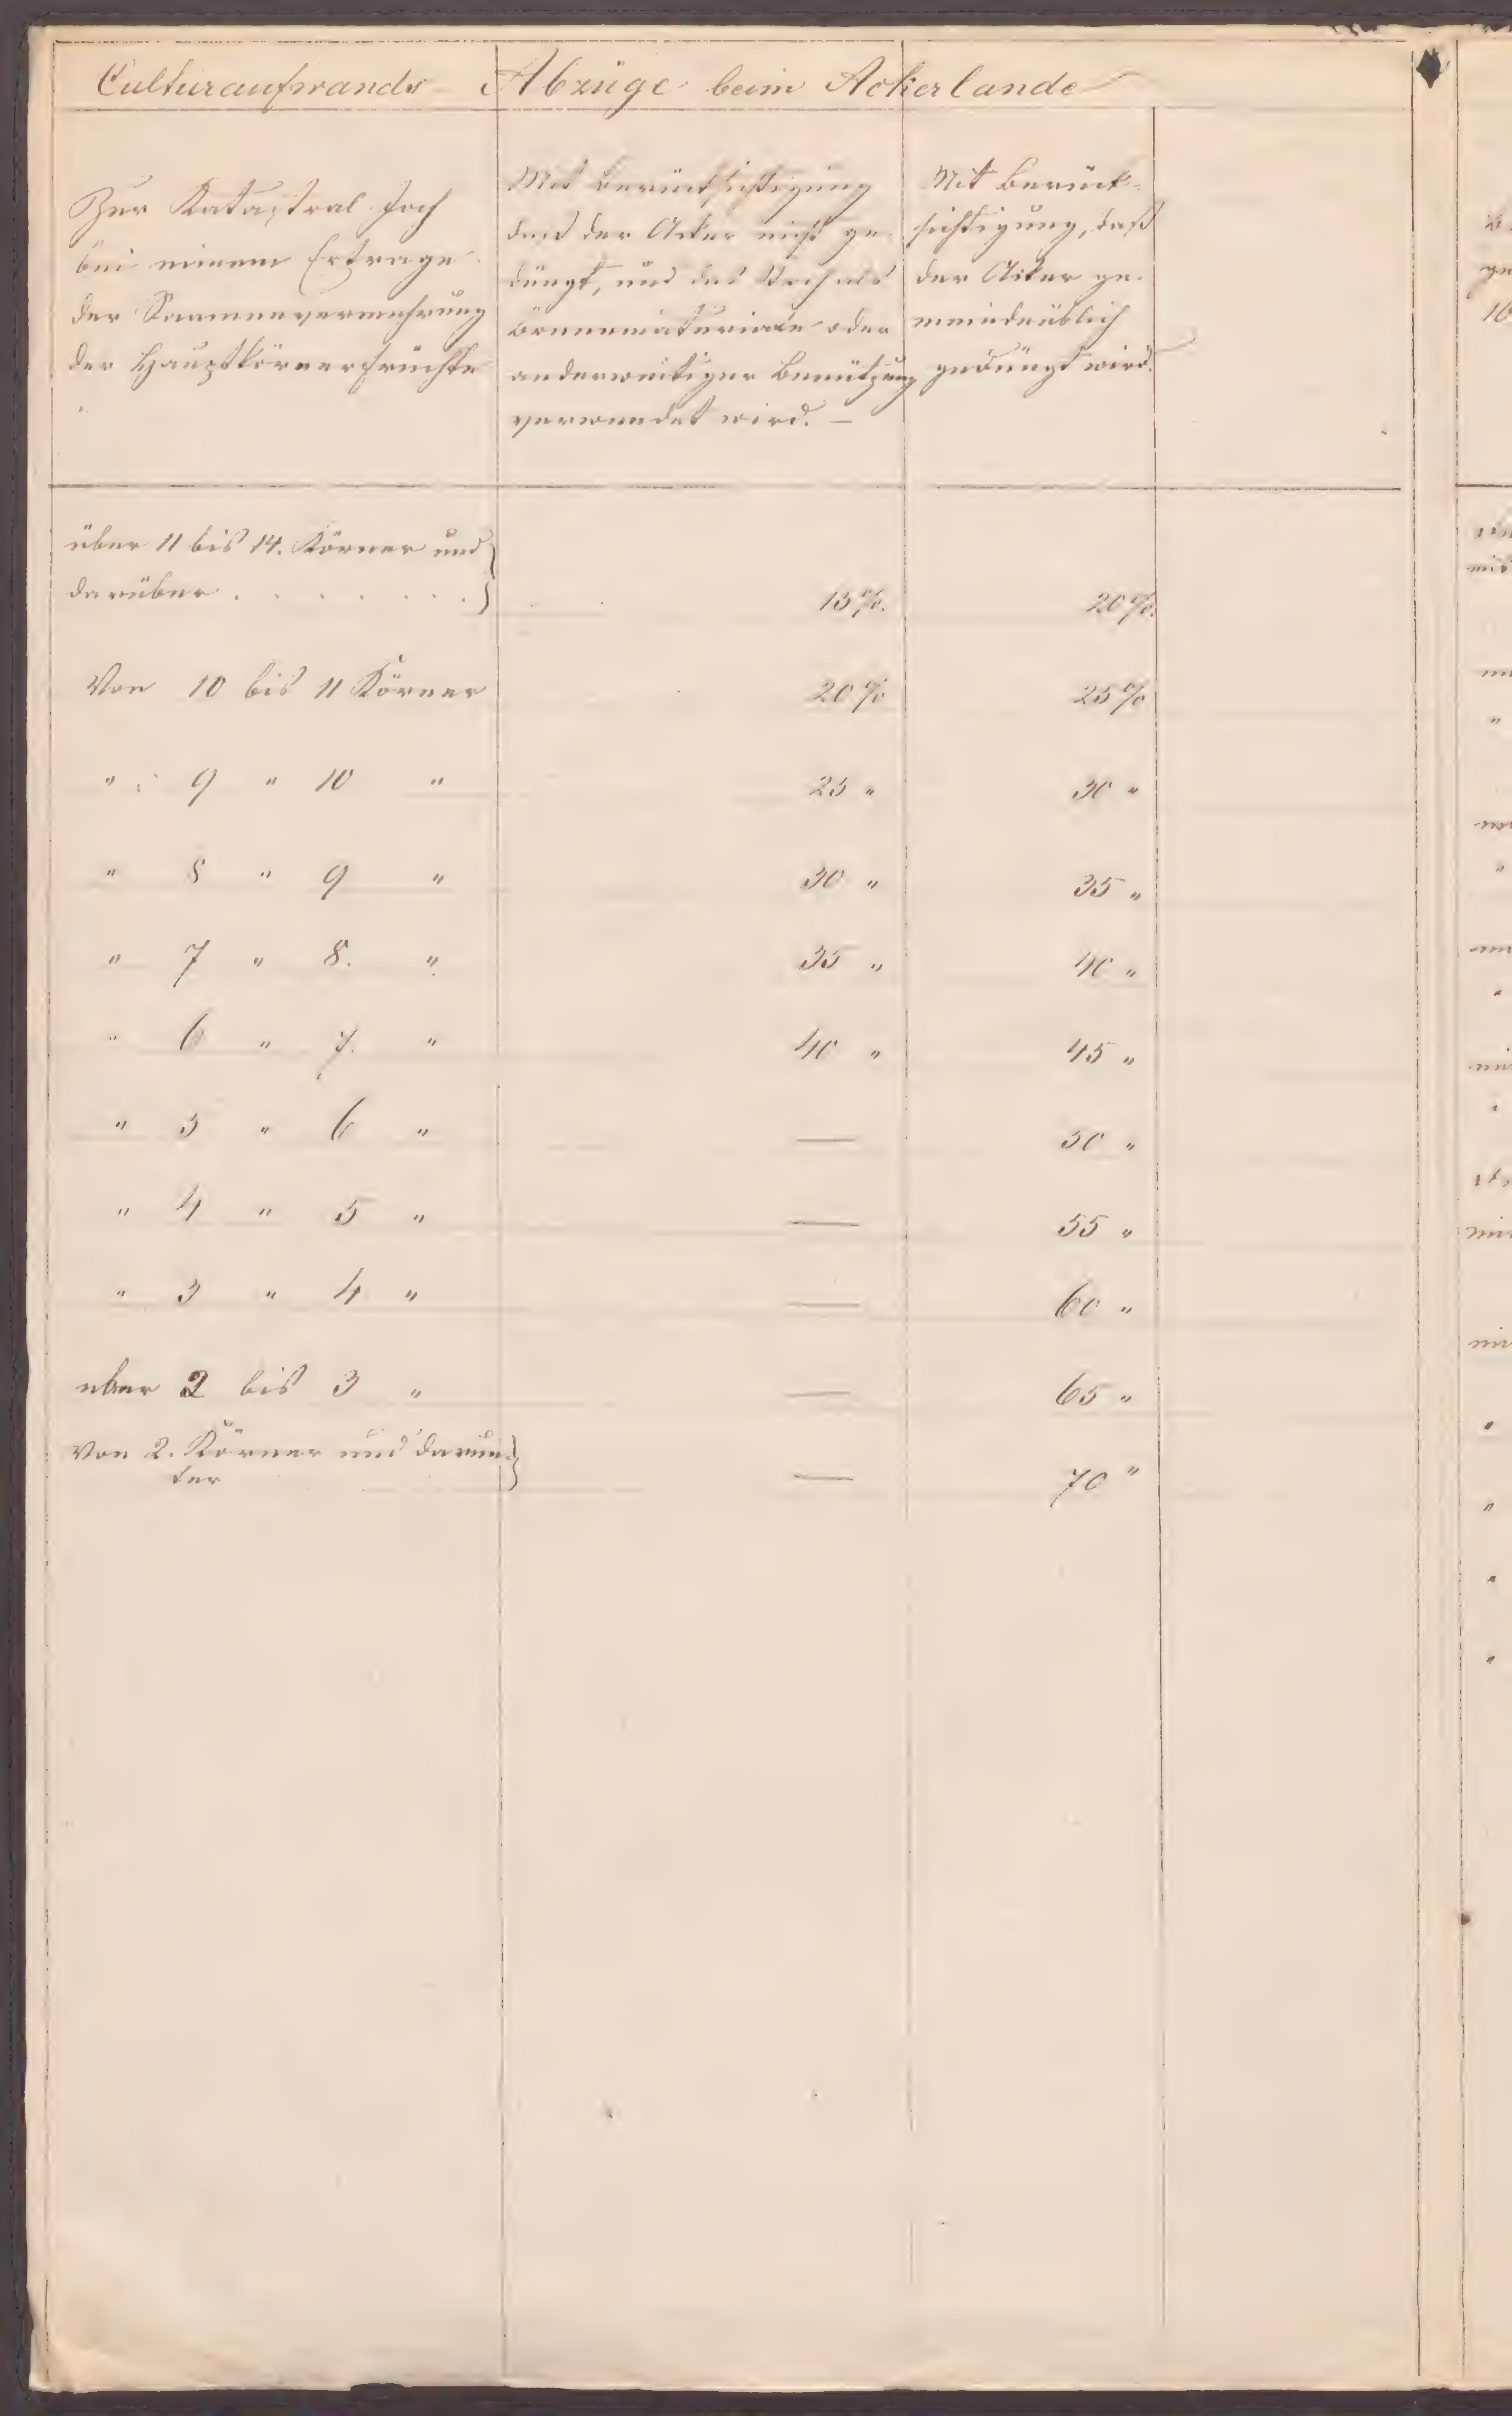 Culturaufwands Abzüge beim Ackerlande
Zur Katastral Joch
bei einem Ertrage
der Saamenvermehrung
der Hauptkörnerfrüchte
Mit Berücksichtigung
daß der Acker nicht ge-
düngt, und das Stroh als
Brennmateriale oder
anderweitiger Benützung
verwendet wird. —
Mit Berück-
sichtigung, daß
der Acker ge-
meindeüblich
gedüngt wird.
über 11 bis 14. Körner und
darüber . . . . . . . 15 %. 20 %.
Von 10 bis 11 Körner 20 % 25 %
" 9 " 10 " 25 " 30 "
" 8 " 9 " 30 " 35 "
" 7 " 8. " 35 " 40 "
" 6 " 7. " 40 " 45 "
" 5 " 6 " — 50 "
" 4 " 5 " — 55 "
" 3 " 4 " — 60 "
über 2 bis 3 " — 65 "
Von 2. Körner und darun-
ter — 70 "